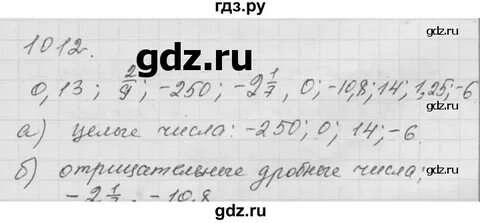 гдз.ру
1012.
gdz.ru
0,13; 2/9; -250; -2 1/7, 0; -10,8; 14; 1,25; -6
а) целые числа: -250; 0; 14; -6.
б) отрицательные дробные числа:
-2 1/7; -10,8
gdz.ru